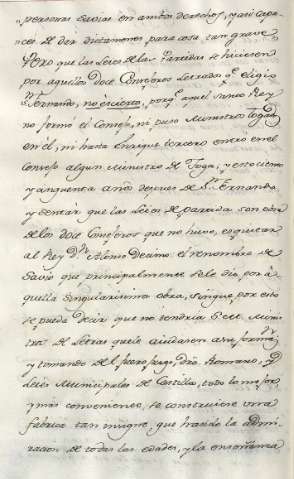 "personas savias en ambos derechos, y assi capa-
ces de dar dictamenes para cosa tan grave
Pero que las Leies de las Partidas se hiciesen
por aquellos doce Consejeros Letrados q.e eligio
S.n Fernando, no es cierto, porq.e aquel Santo Rey
no formó el Consejo, ni puso Ministro Togado
en él, ni hasta Enrique tercero entró en el
Consejo algun Ministro de Toga, y esto ciento
y cinquenta años despues de S.n Fernando
y sentar que las Leies de Partida son obra
de los doce Consejeros que no huvo, es quitar
al Rey D.n Alonso decimo el renombre de
Savio que principalmente se le dio por a-
quella singularissima obra, sin que por esto
se pueda decir que no tendria este Minis-
tros de Letras que le aiudasen a su forma.on
y tomando de el fuero juzgo, dro Romano, y
Leies Municipales de Castilla, todo lo mejor
y mas conveniente, se construiese una
fabrica tan insigne, que haciendo la admi-
racion de todas las edades, y la enseñanza